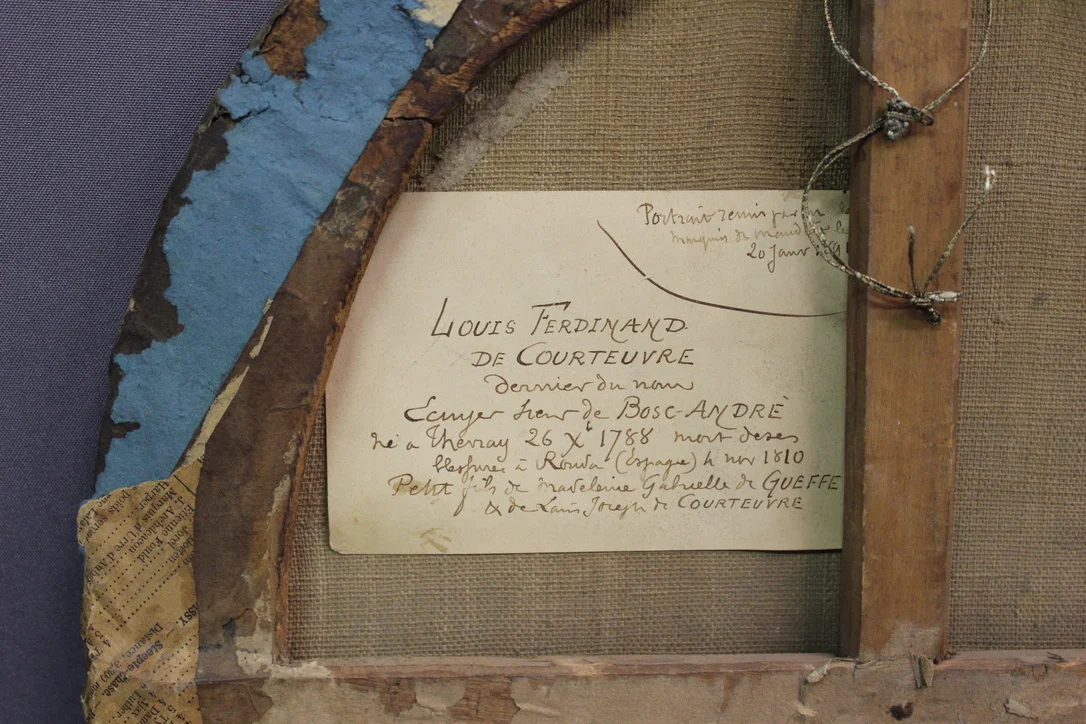 Portrait remis par
marquis de
20 Janv
LOUIS FERDINAND
DE COURTEUVRE
dernier du nom
Ecuyer sieur de BOSC-ANDRÉ
né a Thevray 26 Xb 1788 mort de ses
blessures à Ronda (Espagne) 4 nov 1810
Petit fils de Madeleine Gabrielle de GUEFFE
& de Louis Joseph de COURTEUVRE
Etienne Fould
Marquis
Steeple-chase
Distance,